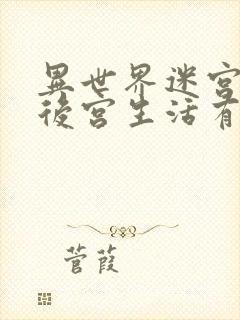 異世界迷宮
後宮生活有
菅葭